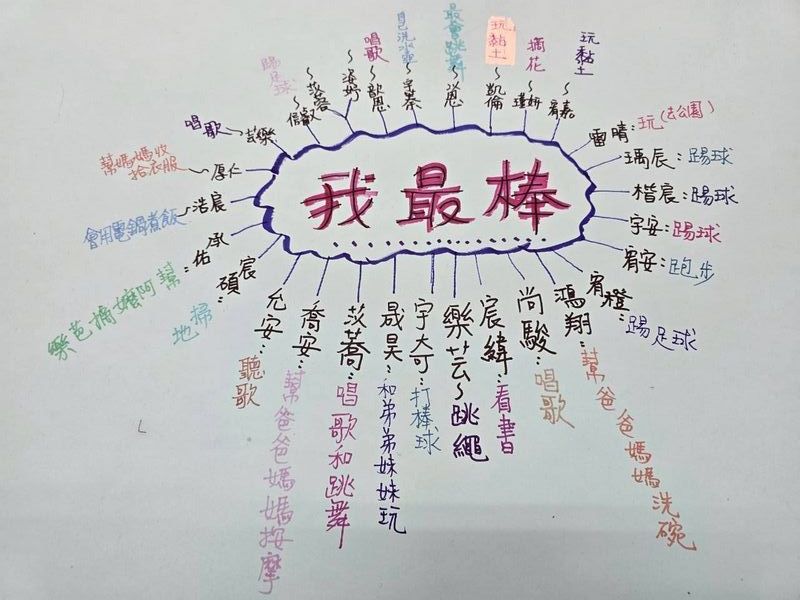 我最棒
宥嘉～玩黏土
瑾妍～摘花
凱倫～玩黏土
～最會跳舞
歆恩～唱歌
姿妤～
苡蓉～
信叡～踢足球
芸樂～唱歌
厚仁～幫媽媽收拾衣服
浩宸～會用電鍋煮飯
佑承：幫阿嬤摘芭樂
碩宸：掃地
允安：聽歌
喬安：幫爸爸媽媽按摩
苡喬：唱歌和跳舞
晟昊：和弟弟妹妹玩
宇大可：打棒球
樂芸～跳繩
宸緯：看書
尚駿：唱歌
鴻翔：幫爸爸媽媽洗碗
宥橙：踢足球
宥安：跑步
宇安：踢球
楷宸：踢球
瑀辰：踢球
雷晴：玩（去公園）